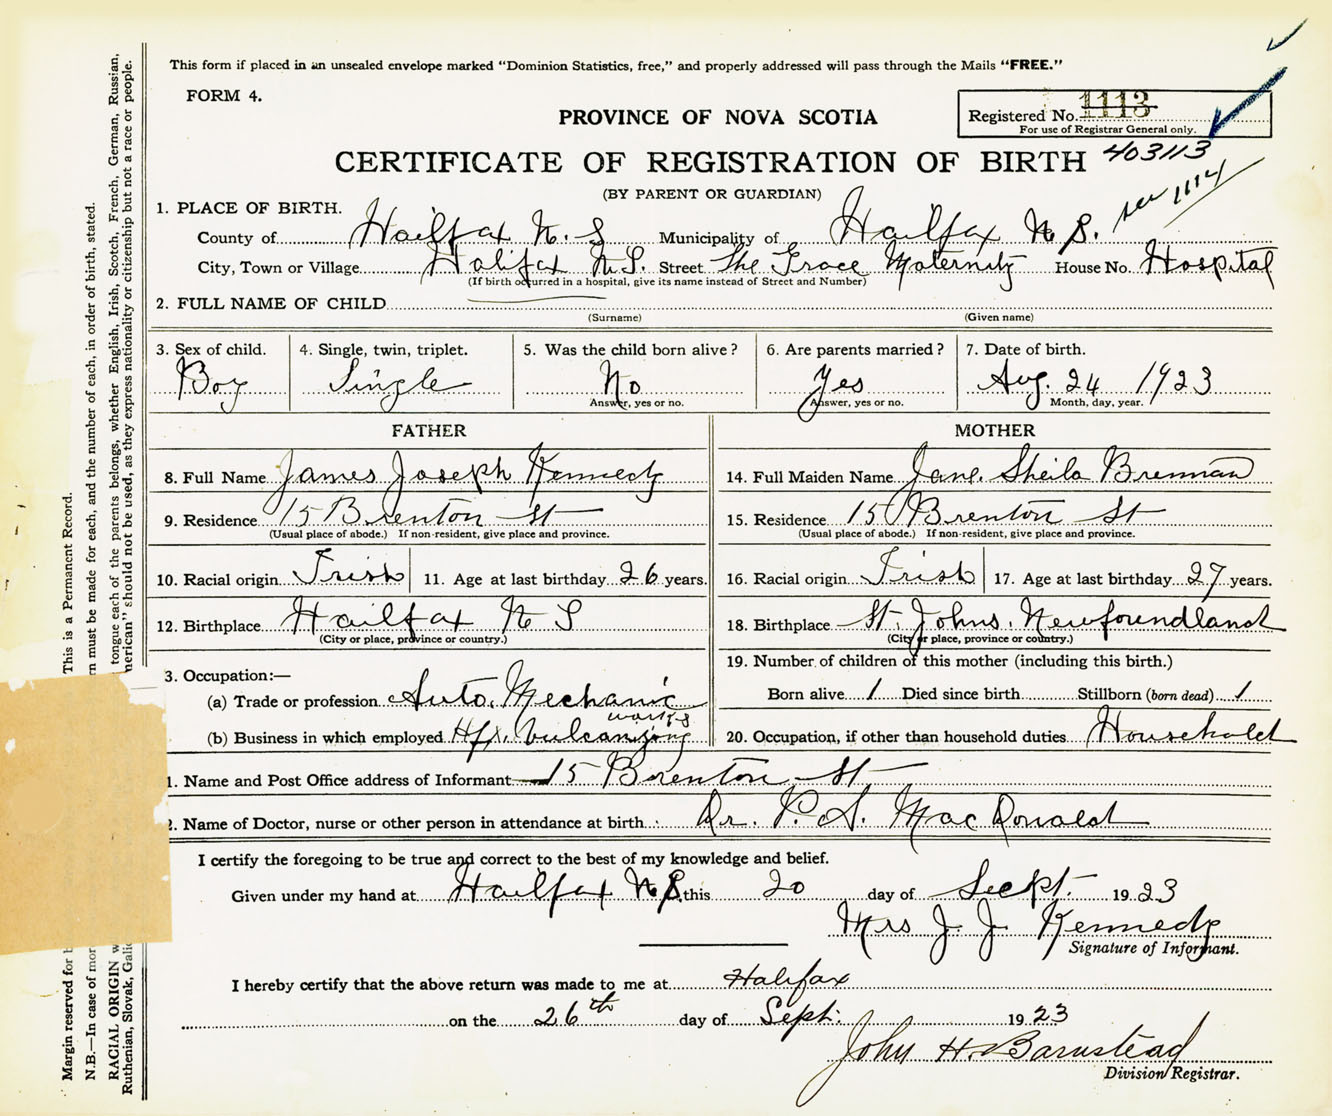 This form if placed in an unsealed envelope marked "Dominion Statistics, free," and properly addressed will pass through the Mails "FREE."
FORM 4.
Registered No. 1113
For use of Registrar General only.
PROVINCE OF NOVA SCOTIA
CERTIFICATE OF REGISTRATION OF BIRTH 403113
(BY PARENT OR GUARDIAN) see 1114
1. PLACE OF BIRTH.
County of Hailfax N. S Municipality of Hailfax N. S.
City, Town or Village Halifax N. S. Street The Grace Maternity House No. Hospital
(If birth occurred in a hospital, give its name instead of Street and Number)
2. FULL NAME OF CHILD
(Surname) (Given name)
3. Sex of child. 4. Single, twin, triplet. 5. Was the child born alive? 6. Are parents married? 7. Date of birth.
Boy Single No Yes Aug. 24 1923
Answer, yes or no. Answer, yes or no. Month, day, year.
FATHER MOTHER
8. Full Name James Joseph Kennedy 14. Full Maiden Name Jane. Sheila Brennan
9. Residence 15 Brenton St 15. Residence 15 Brenton St
(Usual place of abode.) If non-resident, give place and province. (Usual place of abode.) If non-resident, give place and province.
10. Racial origin Irish 11. Age at last birthday 26 years. 16. Racial origin Irish 17. Age at last birthday 27 years.
12. Birthplace Hailfax N S 18. Birthplace St. Johns. Newfoundland
(City or place, province or country.) (City or place, province or country.)
3. Occupation:— 19. Number of children of this mother (including this birth.)
(a) Trade or profession Auto. Mechanic Born alive 1 Died since birth Stillborn (born dead) 1
works
(b) Business in which employed Hfx. Vulcanizing 20. Occupation, if other than household duties Household
1. Name and Post Office address of Informant 15 Brenton St
2. Name of Doctor, nurse or other person in attendance at birth Dr. P. S. MacDonald
I certify the foregoing to be true and correct to the best of my knowledge and belief.
Given under my hand at Hailfax N. S. this 20 day of Sept. 1923
Mrs J. J. Kennedy
Signature of Informant.
I hereby certify that the above return was made to me at Halifax
on the 26th day of Sept. 1923
John H. Barnstead
Division Registrar.
Margin reserved for b
This is a Permanent Record.
N.B.—In case of mor
rn must be made for each, and the number of each, in order of birth, stated.
RACIAL ORIGIN w
tongue each of the parents belongs, whether English, Irish, Scotch, French, German, Russian,
Ruthenian, Slovak, Galic
merican" should not be used, as they express nationality or citizenship but not a race or people.